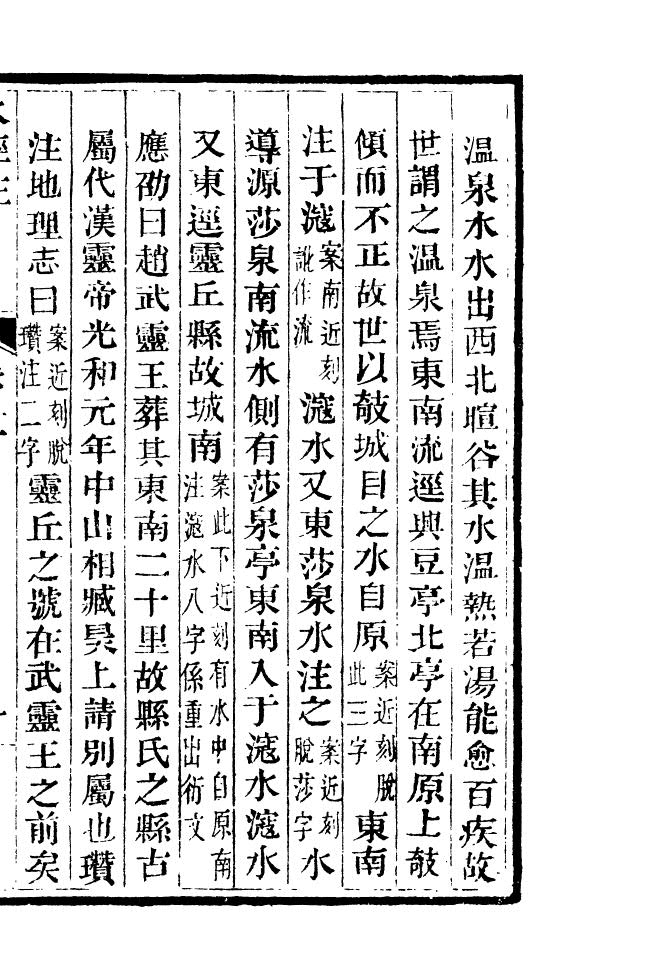 溫泉水水出西北暄谷其水溫熱若湯能愈百疾故
世謂之溫泉焉東南流逕興豆亭北亭在南原上攲
傾而不正故世以攲城目之水自原案近刻脫此三字東南
注于滱案南近刻訛作流滱水又東莎泉水注之案近刻脫莎字水
導源莎泉南流水側有莎泉亭東南入于滱水滱水
又東逕靈丘縣故城南案此下近刻有水中自原南注滱水八字係重出衍文
應劭曰趙武靈王葬其東南二十里故縣氏之縣古
屬代漢靈帝光和元年中山相臧旻上請別屬也瓚
注地理志曰案近刻脫瓚注二字靈丘之號在武靈王之前矣